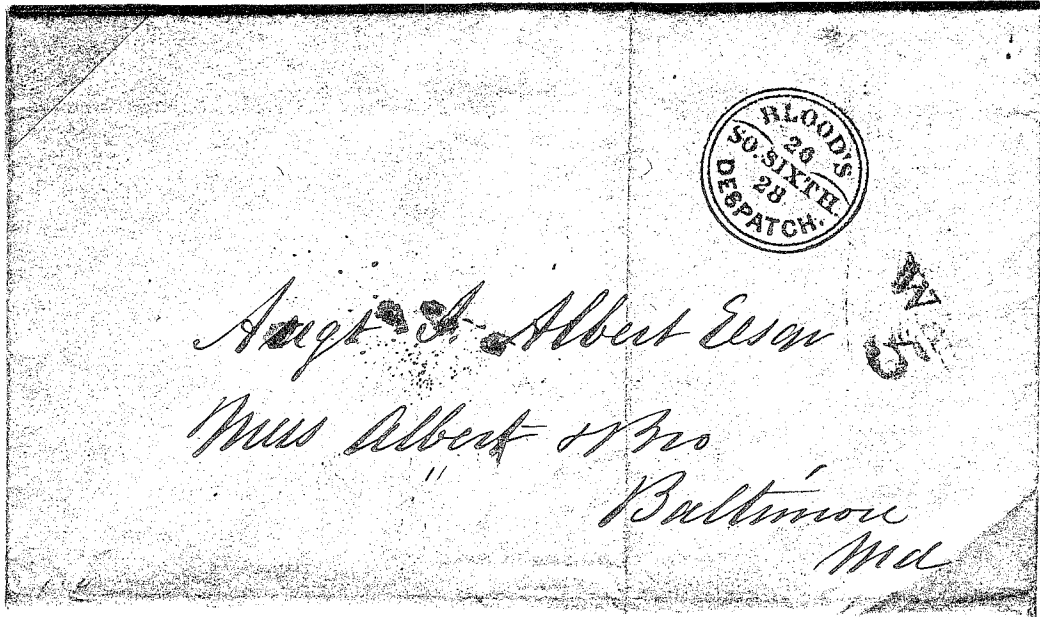 BLOOD'S
26
SO. SIXTH.
28
DESPATCH.
5
Augt A. Albert Esqr
Albert & Bro
Baltimore
Md